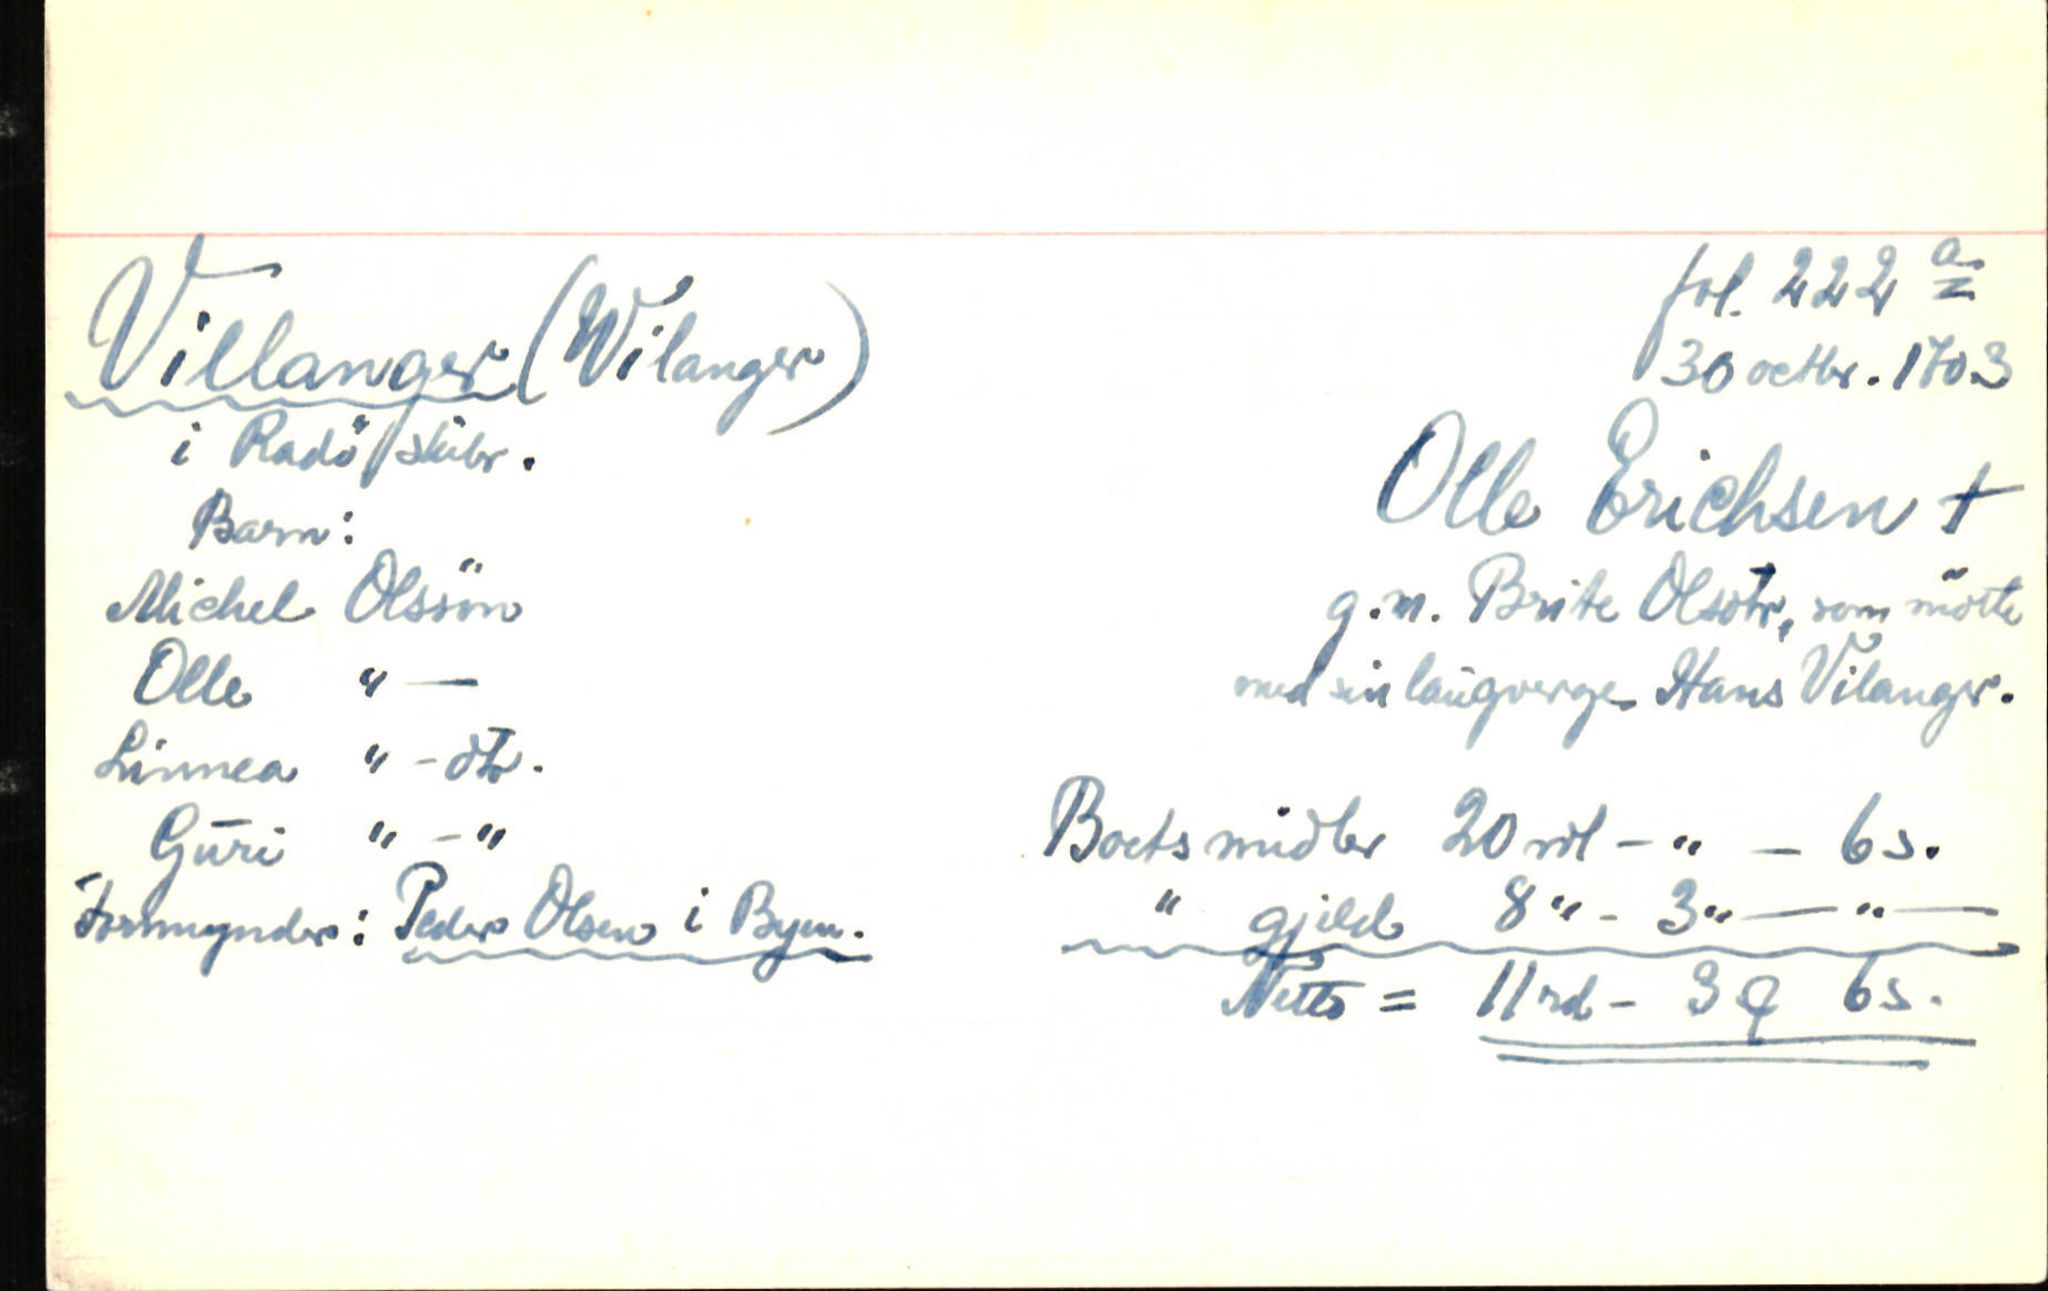 Villanger (Wilanger)
i Radö skibr.
Barn:
Michel Olssön
Olle " —
Linnea " - dtr.
Guri " - "
Formynder: Peder Olsen i Byen.
fol. 222 a
30 octbr. 1703
Olle Erichsen †
g.m. Brite Olsdtr, som mötte
med sin laugverge Hans Vilanger.
Boets midler 20 rdl - " - 6 s.
" gjeld 8 " - 3 " — " —
Netto = 11 rd - 3 ϙ 6 s.